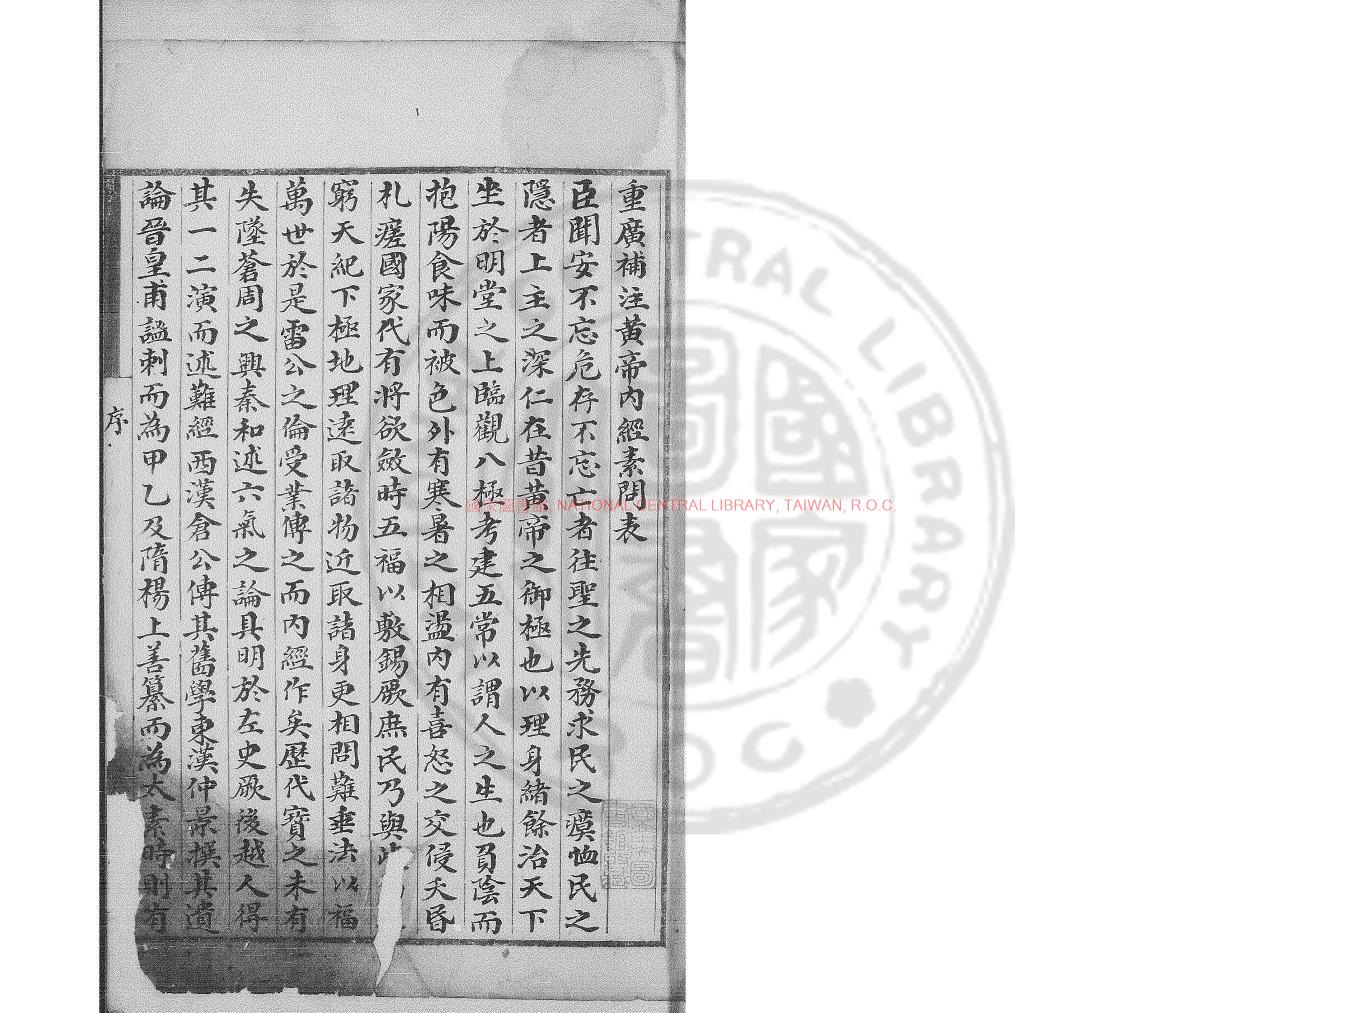 重廣補注黃帝內經素問表
臣聞安不忘危存不忘亡者往聖之先務求民之瘼恤民之
隱者上主之深仁在昔黃帝之御極也以理身緒餘治天下
坐於明堂之上臨觀八極考建五常以謂人之生也負陰而
抱陽食味而被色外有寒暑之相盪內有喜怒之交侵夭昬
札瘥國家代有將欲斂時五福以敷錫厥庶民乃與
窮天紀下極地理遠取諸物近取諸身更相問難垂法以福
萬世於是雷公之倫受業傳之而內經作矣歷代寶之未有
失墜蒼周之興秦和述六氣之論具明於左史厥後越人得
其一二演而述難經西漢倉公傳其舊學東漢仲景撰其遺
論晉皇甫謐刺而為甲乙及隋楊上善纂而為太素時則有
序
國家圖書館, NATIONAL CENTRAL LIBRARY, TAIWAN, R.O.C.